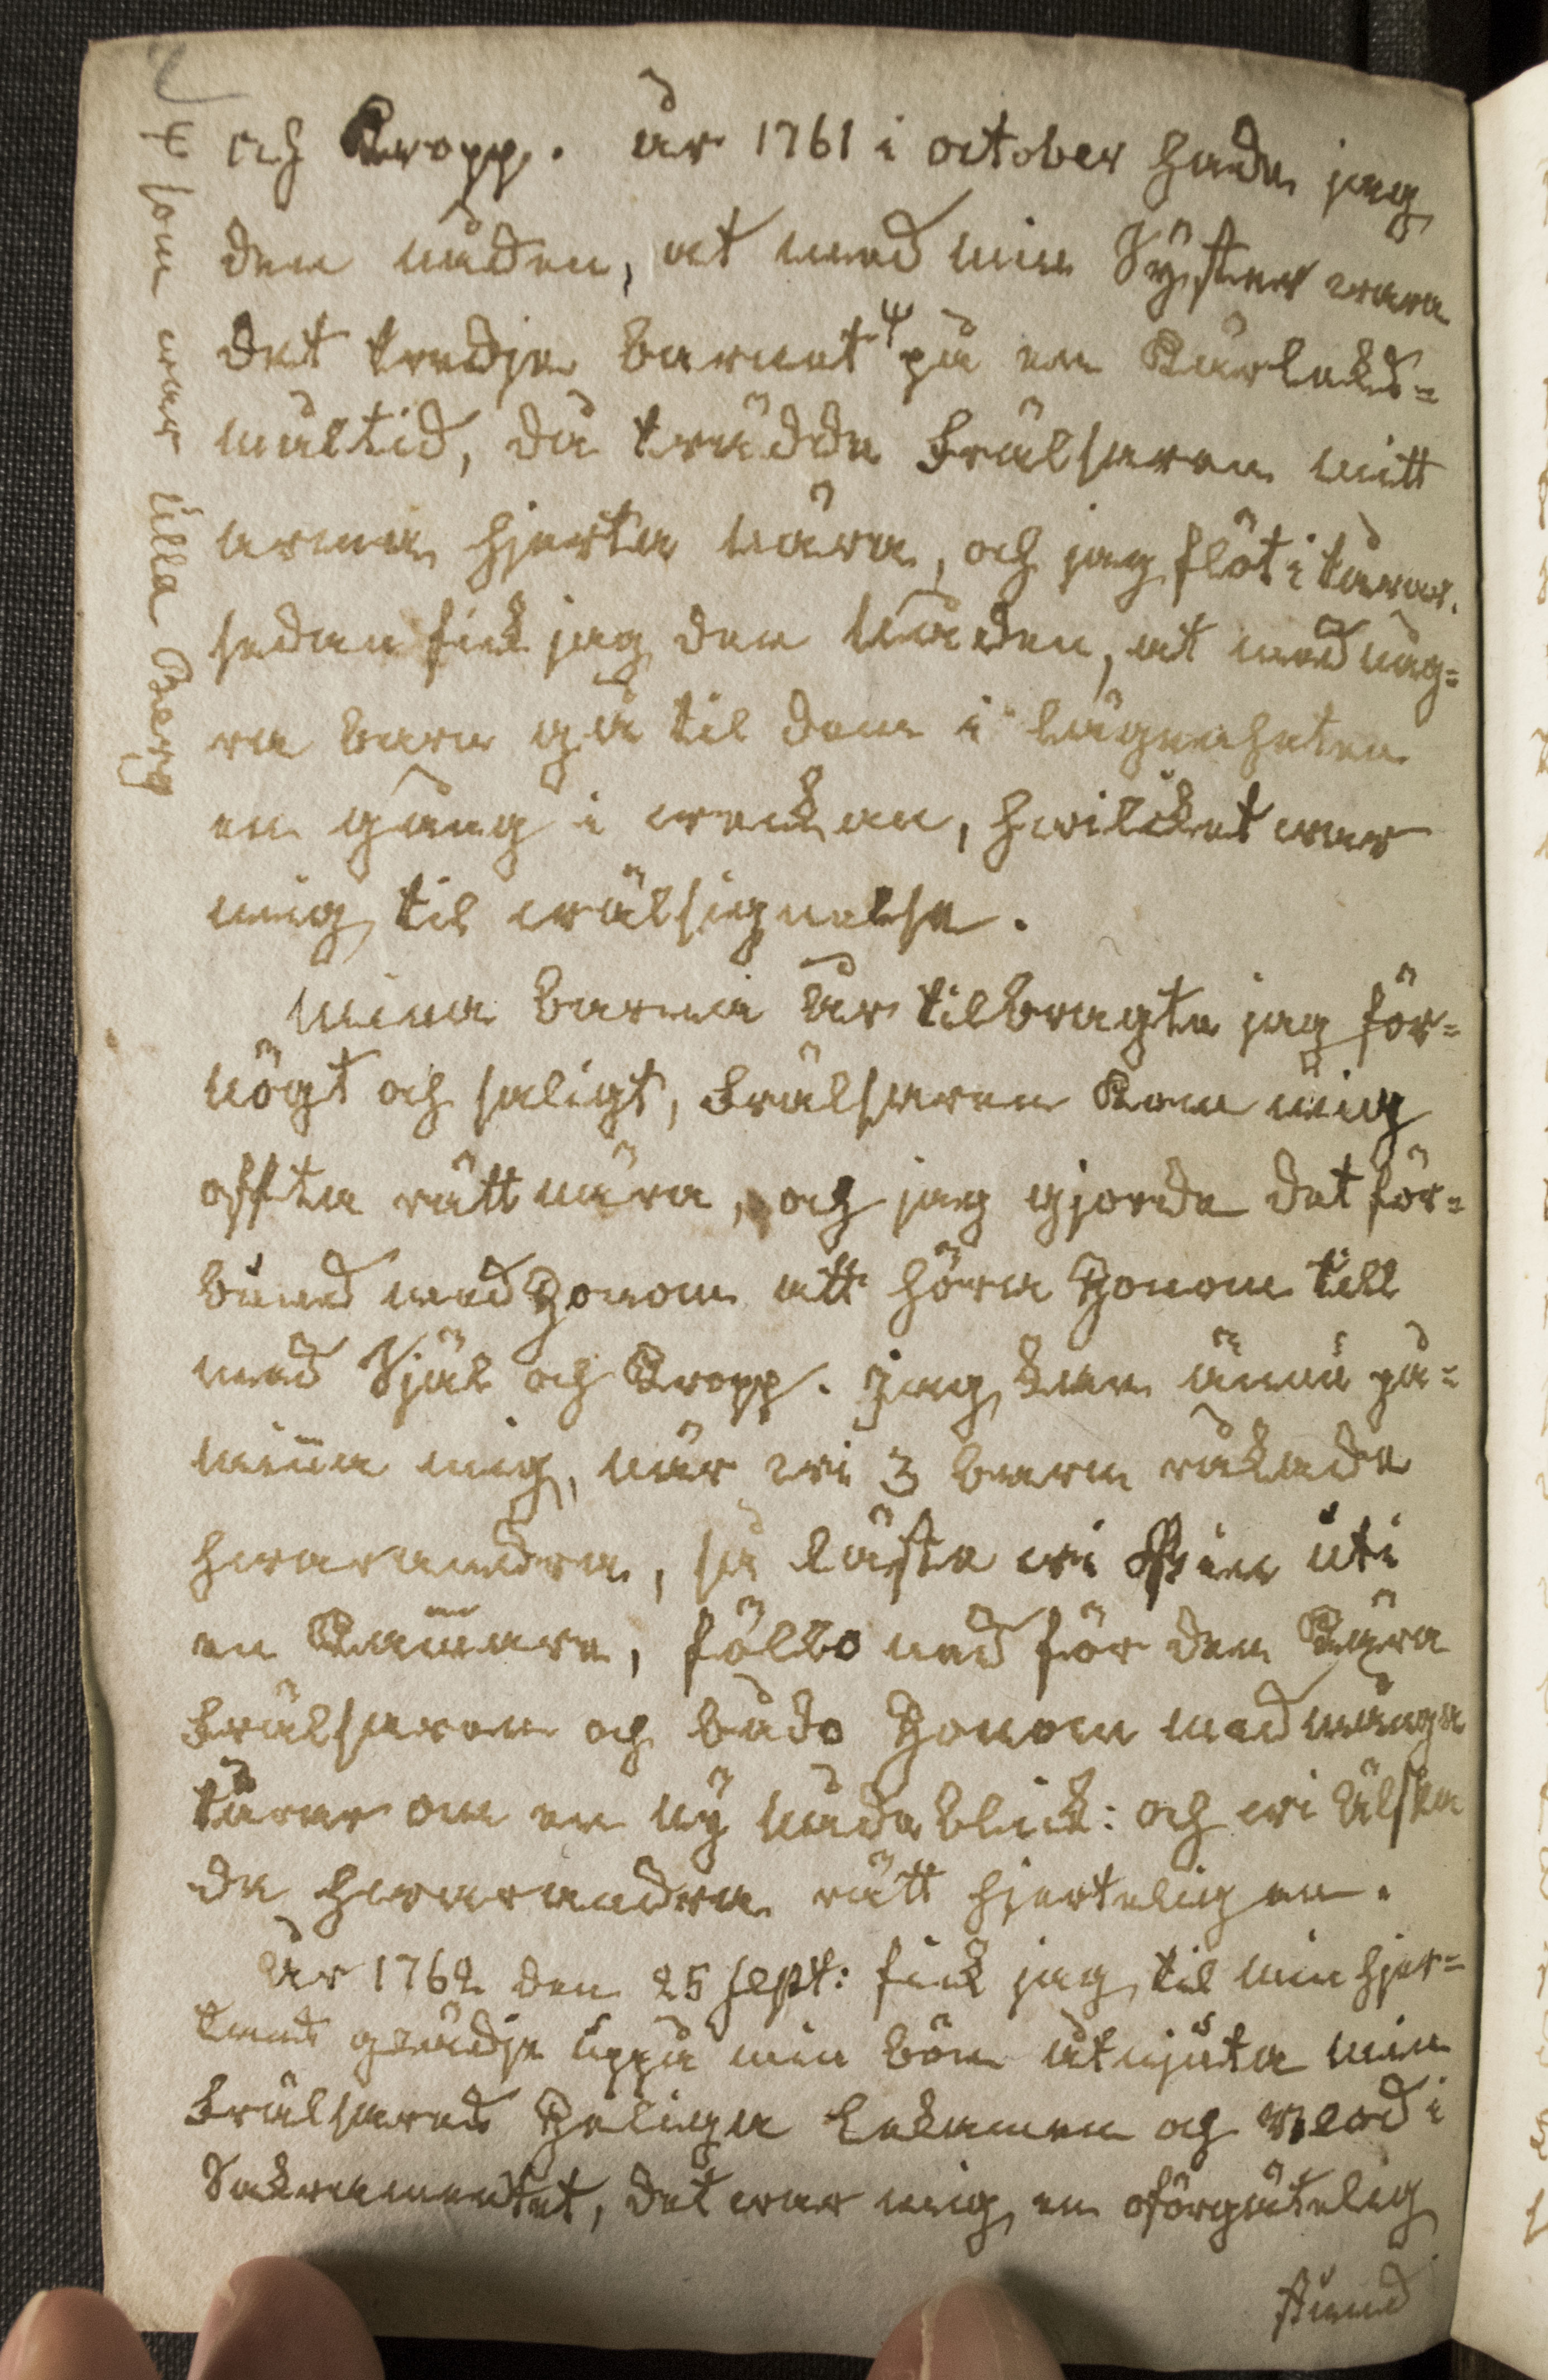 och Kropp. år 1761 i october hade jag
den nåden, at med min Syster wara
det tredje barnet Ψ på en Kärleks=
måltid, då trädde Frälsaren mitt
arma hjerta nära, och jag flöt i tårar.
sedan fick jag den nåden, at med någ=
ra barn gå til dem i lägenheten
en gång i weckan, hwilcket war
mig til wälsignelse.
mina barna år tilbragte jag för=
nögt och saligt, Frälsaren Kom mig
offta rätt nära, och jag gjorde det för=
bund med Honom att höra Honom till
med Själ och Kropp. Jag kan ännu på=
minna mig, när wi 3 barn råkade
hwarandra, så låste wi oss in uti
en Kammare, föllo ned för den Kära
Frälsaren och bådo Honom med många
tårar om en ny nådablick: och wi älska
de hwarandra rätt hjerteligen.
År 1762 den 25 sept: fick jag til min hjer=
tans glädje uppå min bön åtnjuta min
Frälsares Heliga Lekamen och Blod i
Sakramentet, det war mig en oförgätelig
stund
Ψ som war Ulla Berg